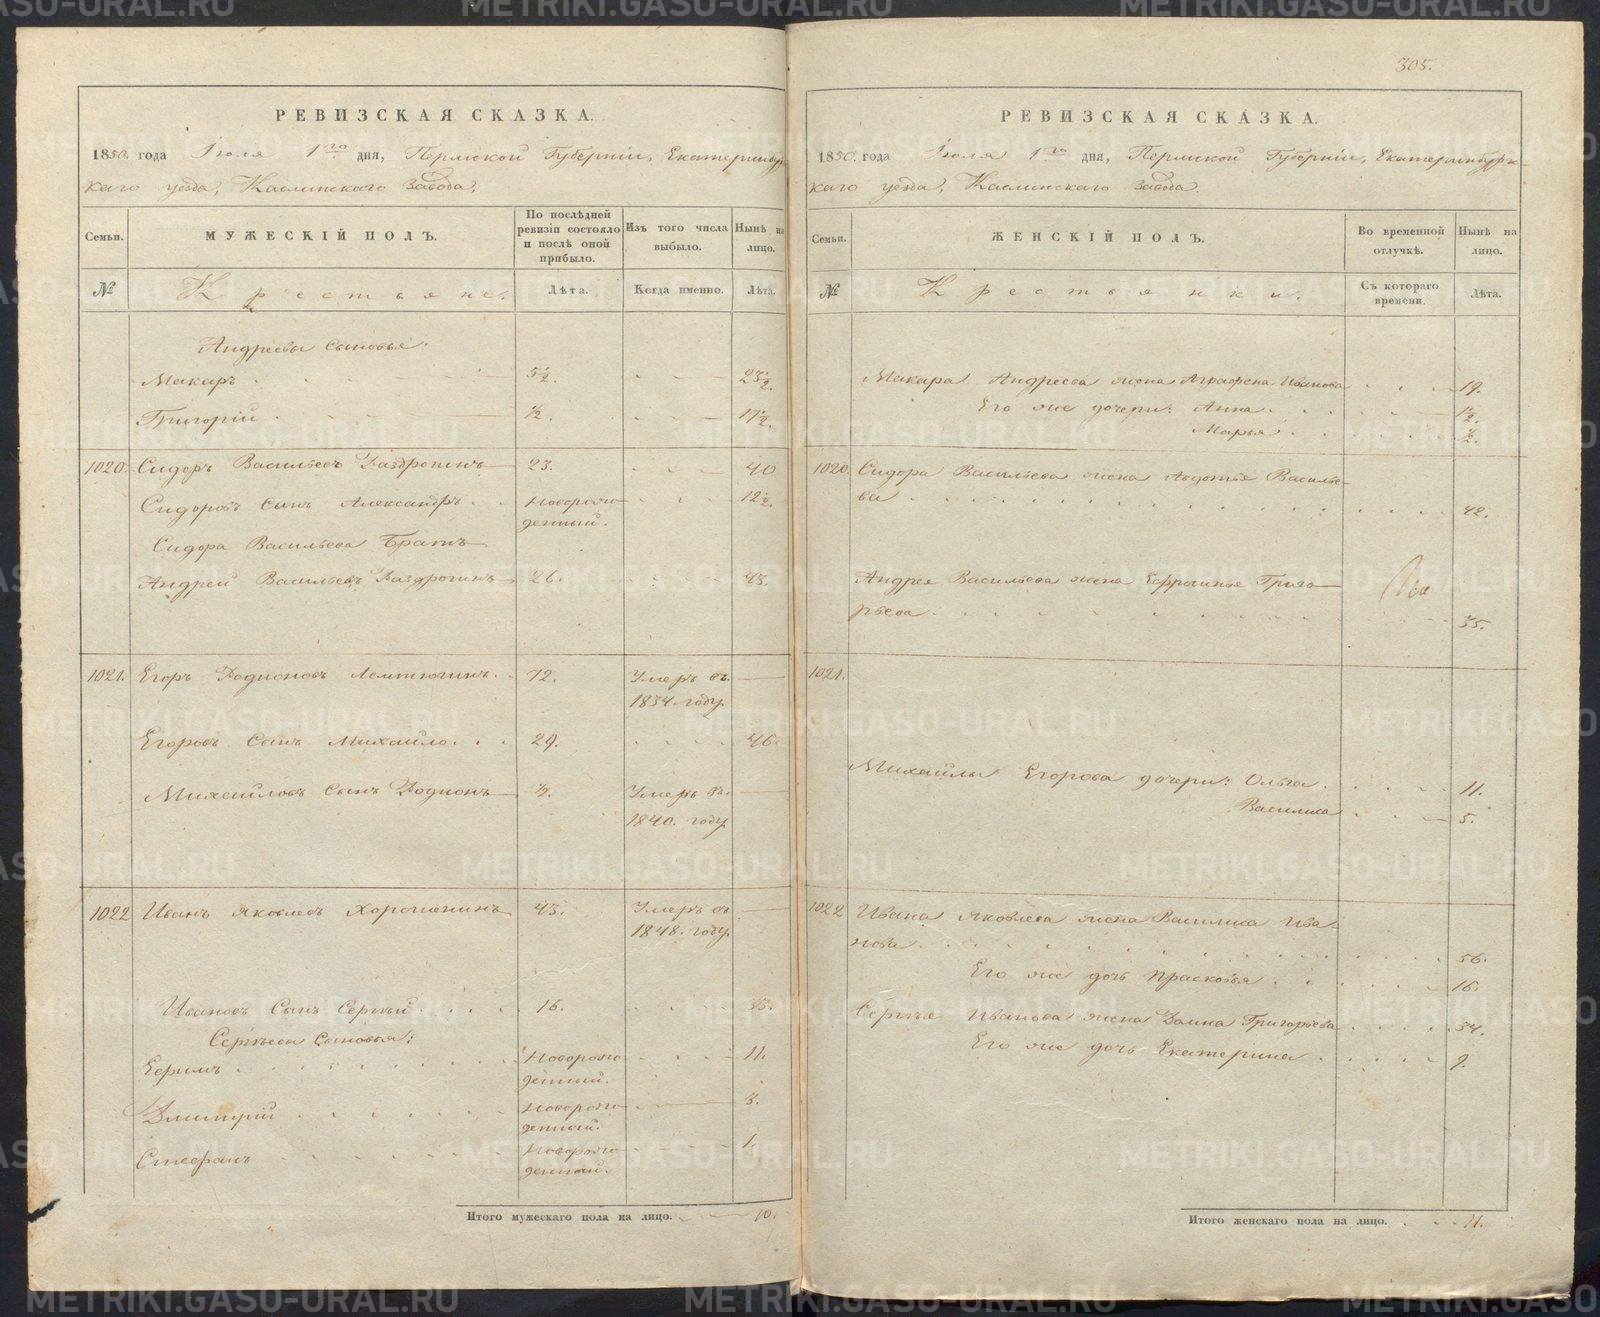 РЕВИЗСКАЯ СКАЗКА.
1850. года Іюля 1го дня, Пермской Губерніи, Екатеринбур
скаго уезда, Каслинскаго Завода,
Семьи.
МУЖЕСКІЙ ПОЛЪ.
По послѣдней ревизіи состояло и послѣ оной прибыло.
Изъ того числа выбыло.
Нынѣ на лицо.
№
Крестьяне.
Лѣта.
Когда именно.
Лѣта.
Андреевы Сыновья:
Макаръ 5½. 23½.
Григорій ½. 17½.
1020. Сидоръ Васильевъ 23. 40
Сидоровъ Сынъ Александръ Новорож- 12½.
денный.
Сидора Васильева Братъ
Андрей Васильевъ 26. 43.
1021. Егоръ Родионовъ 72. Умеръ въ
1834. году.
Егоровъ Сынъ Михайло. 29. 46.
Михайловъ Сынъ Родионъ ½. Умеръ въ
1840. году
1022 Иванъ Яковлевъ Хорошенинъ 43. Умеръ въ
1848. году.
Ивановъ Сынъ Сергѣй 16. 33.
Сергѣевы Сыновья:
Ефимъ Новорож- 11.
денный.
Дмитрій Новорож- 3.
денный.
Стефанъ Новорож- 1.
денный.
Итого мужескаго пола на лицо. 10.
305.
РЕВИЗСКАЯ СКАЗКА.
1850. года Іюля 1го дня, Пермской Губерніи, Екатеринбург-
скаго уезда, Каслинскаго Завода.
Семьи.
ЖЕНСКІЙ ПОЛЪ.
Во временной отлучкѣ.
Нынѣ на лицо.
№
Крестьянки.
Съ котораго времени.
Лѣта.
Макара Андреева жена Аграфена Иванова 19.
Его же дочери: Анна. 1½.
Марья ½.
1020. Сидора Васильева жена Авдотья Василье-
ва 42.
Андрея Васильева жена Ефросинья Григо-
рьева 35.
1021.
Михайлы Егорова дочери: Ольга 11.
Василиса 5.
1022 Ивана Яковлева жена Василиса Ива-
нова 56.
Его же дочь Прасковья 16.
Сергѣя Иванова жена Домна Григорьева 34.
Его же дочь Екатерина 9.
Итого женскаго пола на лицо. 11.
METRIKI.GASO-URAL.RU